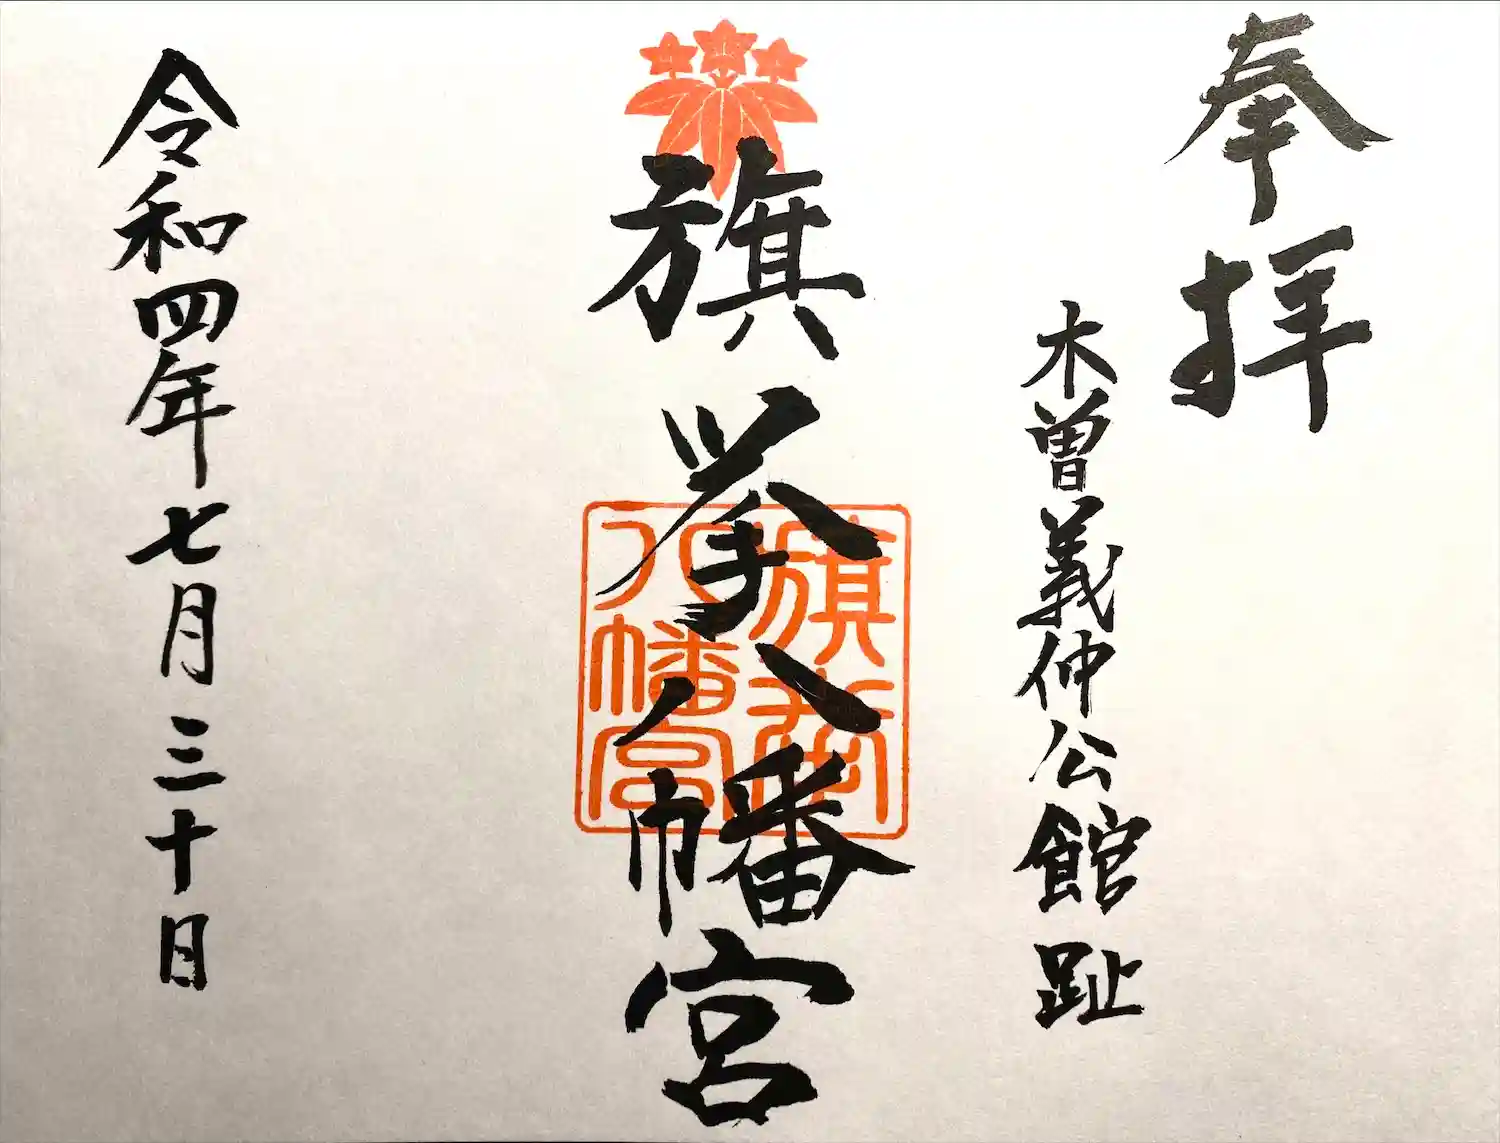 奉拝
木曽義仲公館趾
旗挙八幡宮
旗挙
八幡宮
令和四年七月三十日